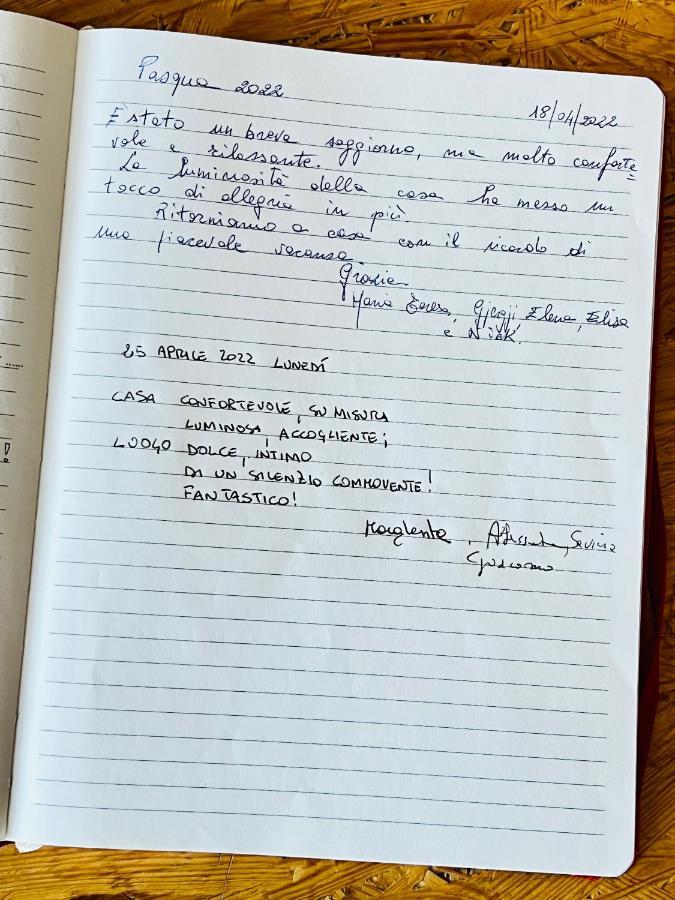 Pasqua 2022
18/04/2022
È stato un breve soggiorno, ma molto conforte=
vole e rilassante.
La luminosità della casa ha messo un
tocco di allegria in più.
Ritorniamo a casa con il ricordo di
una piacevole vacanza
Grazie.
Maria Teresa, Gjergji Elena, Elisa
e Nick.
25 APRILE 2022 LUNEDÍ
CASA CONFORTEVOLE, SU MISURA
LUMINOSA, ACCOGLIENTE;
LUOGO DOLCE, INTIMO
DA UN SILENZIO COMMOVENTE!
FANTASTICO!
Giacomo
!